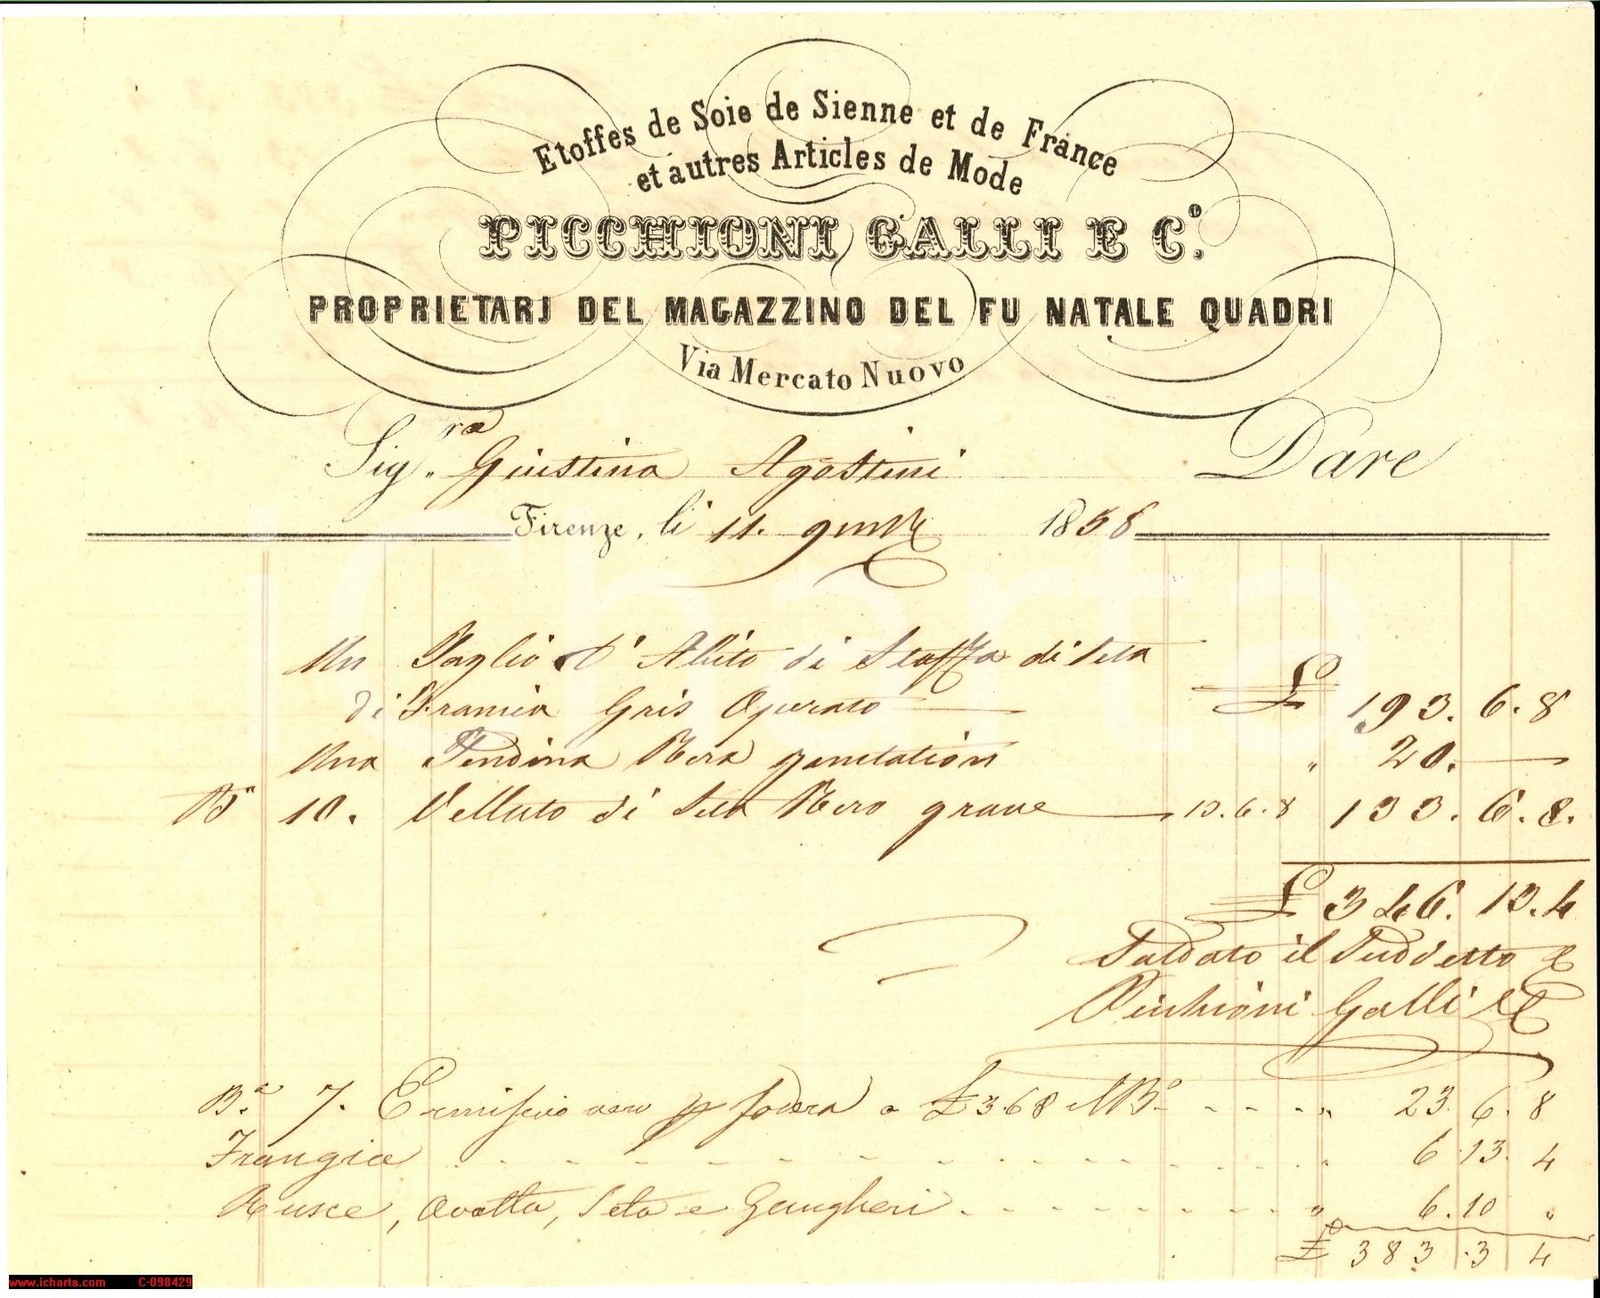 Etoffes de Soie de Sienne et de France
et autres Articles de Mode
PICCHIONI GALLI E C.º
PROPRIETARJ DEL MAGAZZINO DEL FU NATALE QUADRI
Via Mercato Nuovo
Sig.ra Giustina Agostini Dare
Firenze, li 11. 1858
Un Taglio d' Abito di Stoffa di Seta
di Francia Gris Operato £ 193. 6. 8
Una Tendina Nera " 20.
Ba 10. Velluto di Seta Nero grave 13. 6. 8 133. 6. 8.
£ 346. 13. 4
Saldato il Suddetto
Picchioni Galli e C
B.a 7. nero p fodera a £ 3 6 8 " 23. 6. 8
Frangia " 6. 13. 4
Ovatta, Seta e Gangheri " 6. 10 "
£ 383. 3 4
iCharta
www.icharta.com C-098429